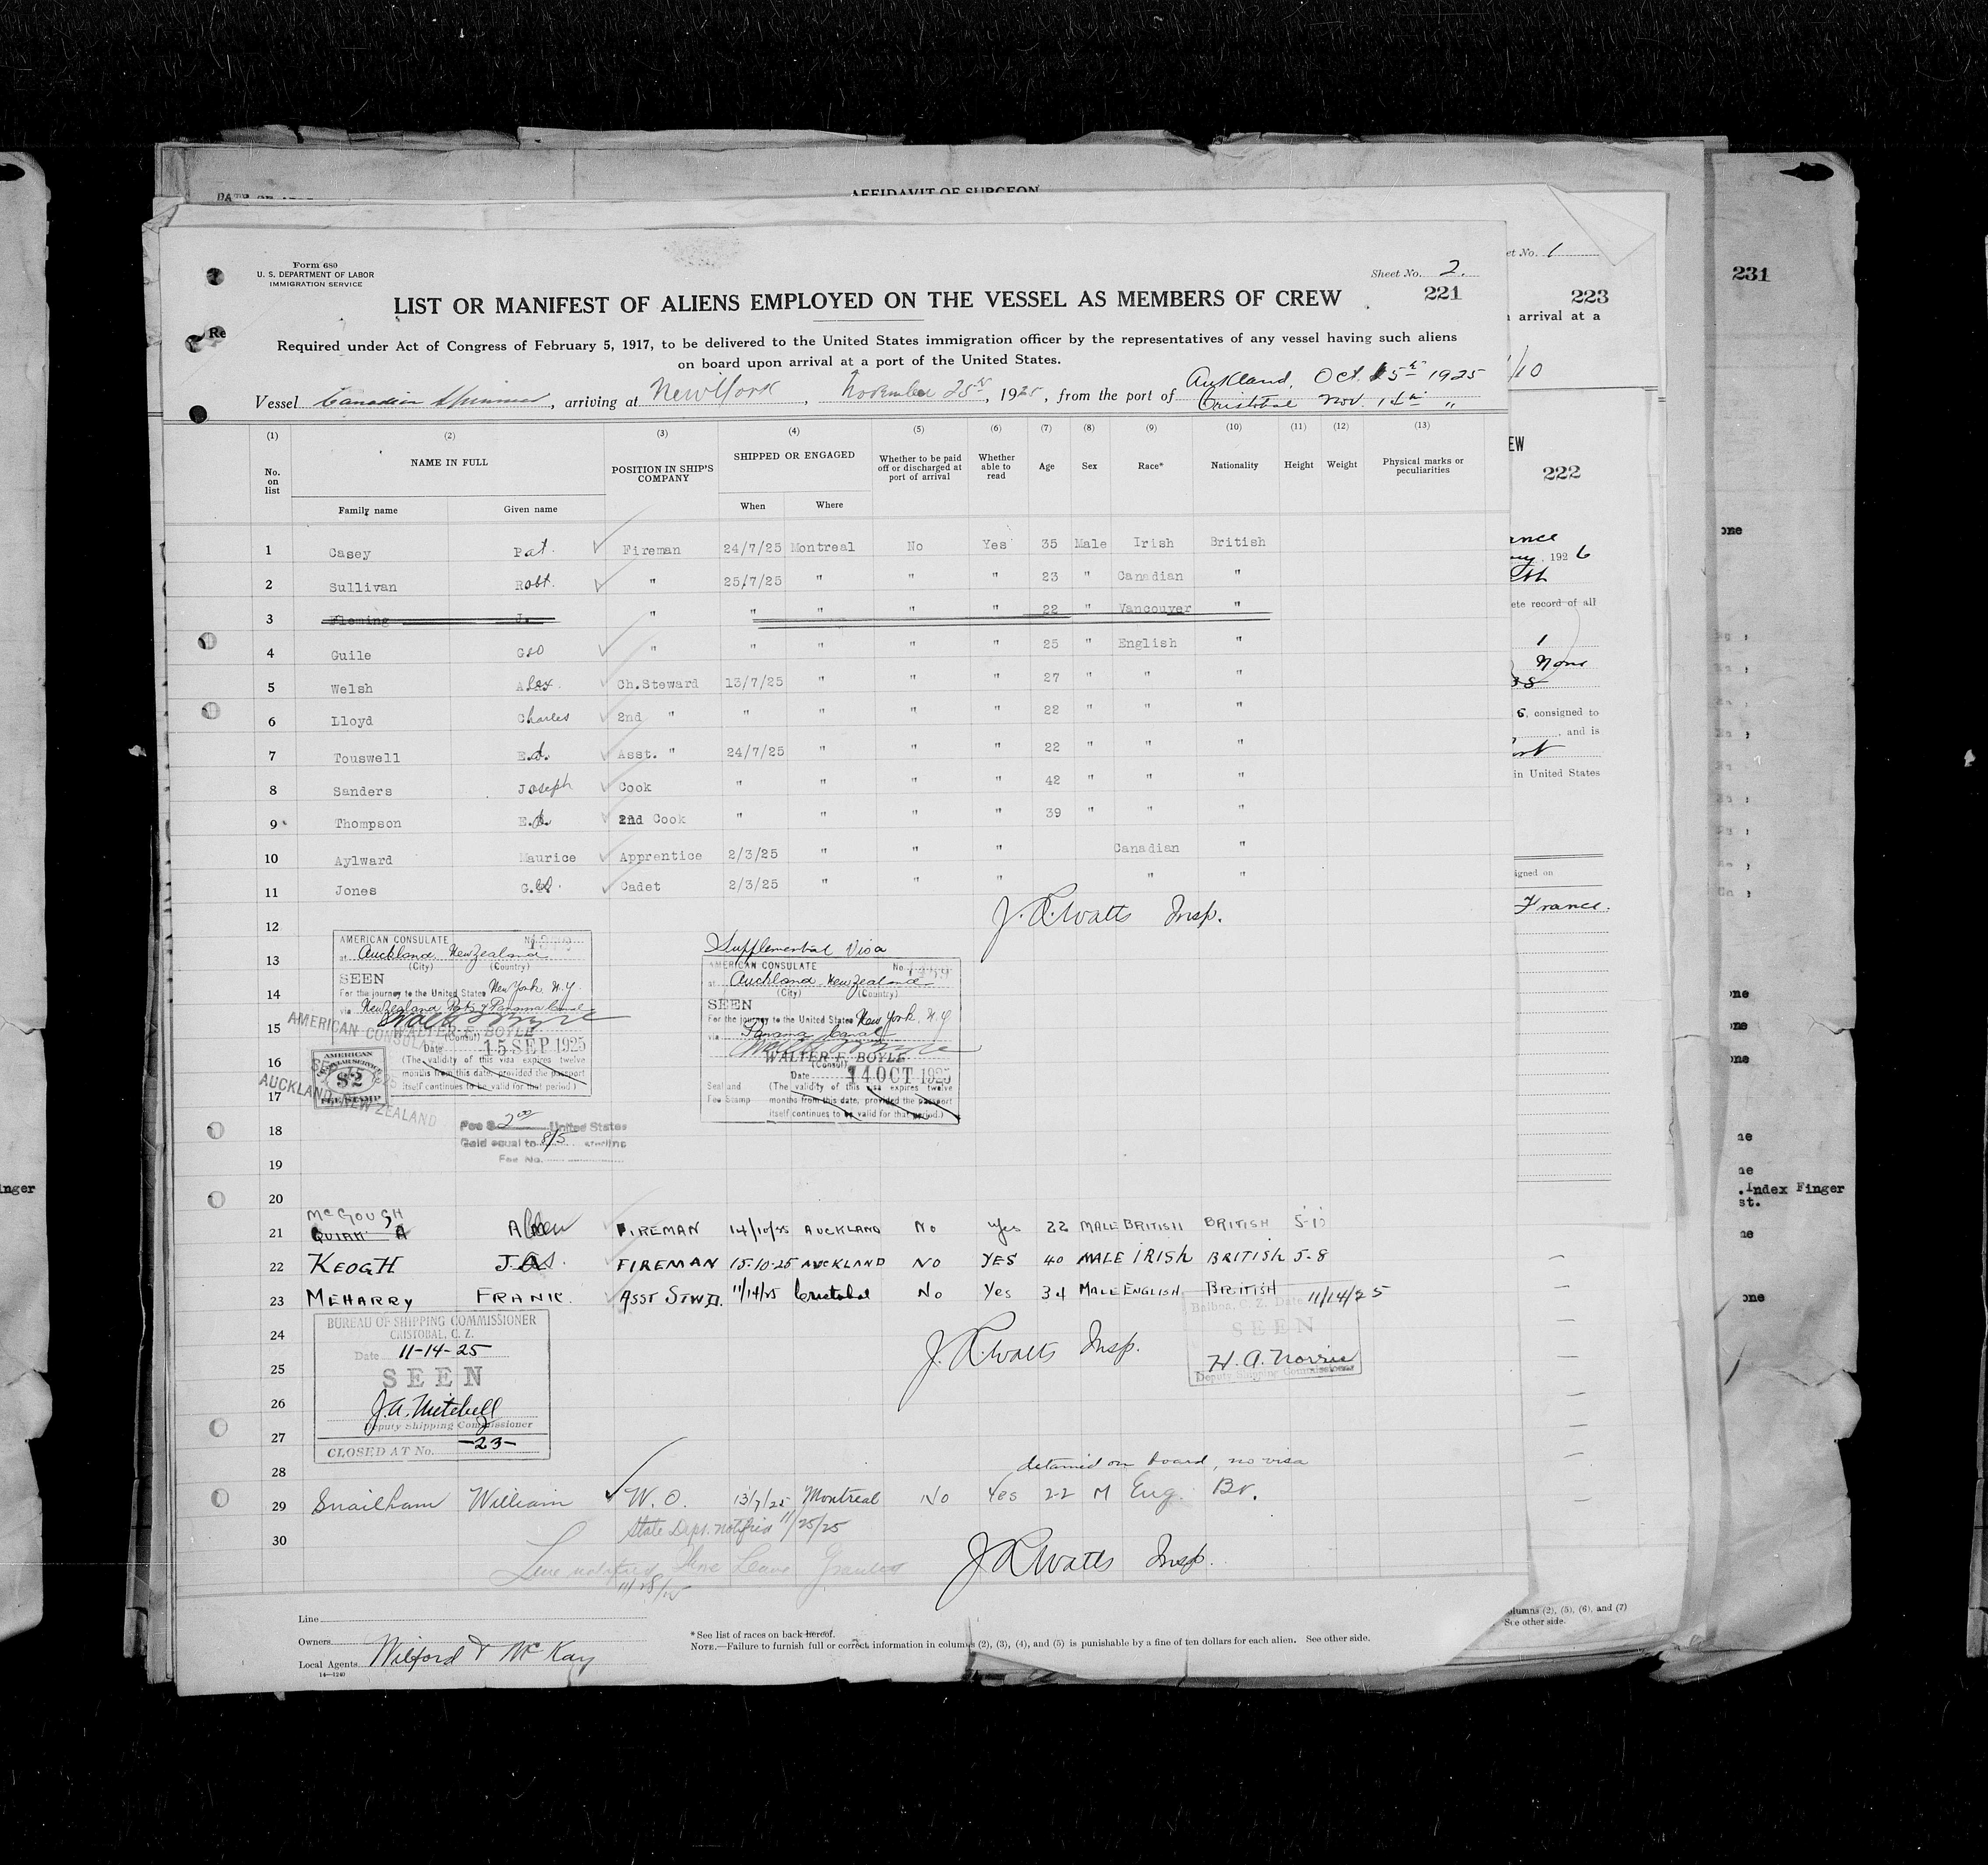 AFFIDAVIT OF SURGEON
Form 680
U. S. DEPARTMENT OF LABOR
IMMIGRATION SERVICE
Sheet No. 2.
221
LIST OR MANIFEST OF ALIENS EMPLOYED ON THE VESSEL AS MEMBERS OF CREW
Required under Act of Congress of February 5, 1917, to be delivered to the United States immigration officer by the representatives of any vessel having such aliens
on board upon arrival at a port of the United States.
Auckland, Oct. 15th 1925
Vessel Canadian Spinner, arriving at New York, November 25th, 1925, from the port of Cristobal Nov. 14th "
(1) (2) (3) (4) (5) (6) (7) (8) (9) (10) (11) (12) (13)
No. on list NAME IN FULL POSITION IN SHIP'S COMPANY SHIPPED OR ENGAGED Whether to be paid off or discharged at port of arrival Whether able to read Age Sex Race* Nationality Height Weight Physical marks or peculiarities
Family name Given name When Where
1 Casey Pat. Fireman 24/7/25 Montreal No Yes 35 Male Irish British
2 Sullivan Robt. " 25/7/25 " " " 23 " Canadian "
3 Fleming J. " " " " " 22 " Vancouver "
4 Guile Geo " " " " " 25 " English "
5 Welsh Alex. Ch.Steward 13/7/25 " " " 27 " " "
6 Lloyd Charles 2nd " " " " " 22 " " "
7 Touswell Ed. Asst. " 24/7/25 " " " 22 " " "
8 Sanders Joseph Cook " " " " 42 " " "
9 Thompson E. 2nd Cook " " " " 39 " " "
10 Aylward Maurice Apprentice 2/3/25 " " " Canadian "
11 Jones G. Cadet 2/3/25 " " " " "
12 J. R. Watts Insp.
13
14
15
16
17
18
19
20
AMERICAN CONSULATE No.
at Auckland New Zealand
(City) (Country)
SEEN
For the journey to the United States New York, N.Y.
via New Zealand Ports & Panama Canal
WALTER F. BOYLE
(Consul)
Date 15 SEP 1925
(The validity of this visa expires twelve
months from this date, provided the passport
itself continues to be valid for that period.)
AMERICAN CONSULATE
AUCKLAND, NEW ZEALAND
AMERICAN
$2
FEE STAMP
Fee $ 2.00 United States
Gold equal to 8/5 sterling
Fee No.
Supplemental Visa
AMERICAN CONSULATE No.
at Auckland New Zealand
(City) (Country)
SEEN
For the journey to the United States New York, N.Y
via Panama Canal
WALTER F. BOYLE
(Consul)
Date 14 OCT 1925
Seal and (The validity of this visa expires twelve
Fee Stamp months from this date, provided the passport
itself continues to be valid for that period.)
McGOUGH
21 QUIRK A Allen FIREMAN 14/10/25 AUCKLAND No Yes 22 MALE BRITISH BRITISH 5-10
22 KEOGH JAS. FIREMAN 15-10-25 AUCKLAND NO YES 40 MALE IRISH BRITISH 5-8
23 MEHARRY FRANK. ASST STWD. 11/14/25 Cristobal No Yes 34 MALE ENGLISH BRITISH
24
25
26
27
28
BUREAU OF SHIPPING COMMISSIONER
CRISTOBAL, C. Z.
Date 11-14-25
SEEN
J.A. Mitchell
Deputy Shipping Commissioner
CLOSED AT No. -23-
J. R. Watts Insp.
Balboa, C. Z. Date 11/14/25
SEEN
H. A. Norris
Deputy Shipping Commissioner
detained on board, no visa
29 Snailham William W. O. 13/7/25 Montreal No Yes 22 M Eng. Br.
State Dept. notified 11/25/25
30 J R Watts Insp.
Line notified Shore Leave Granted
Line
Owners
Local Agents Wilford & McKay
14—1240
* See list of races on back hereof.
NOTE.—Failure to furnish full or correct information in columns (2), (3), (4), and (5) is punishable by a fine of ten dollars for each alien. See other side.
et No. 1
223
arrival at a
/10
EW
222
, 1926
ete record of all
1
None
6, consigned to
, and is
in United States
igned on
France.
olumns (2), (5), (6), and (7)
See other side.
231
one
one
one
one
ne
ne
.Index Finger
st.
ne
one
inger